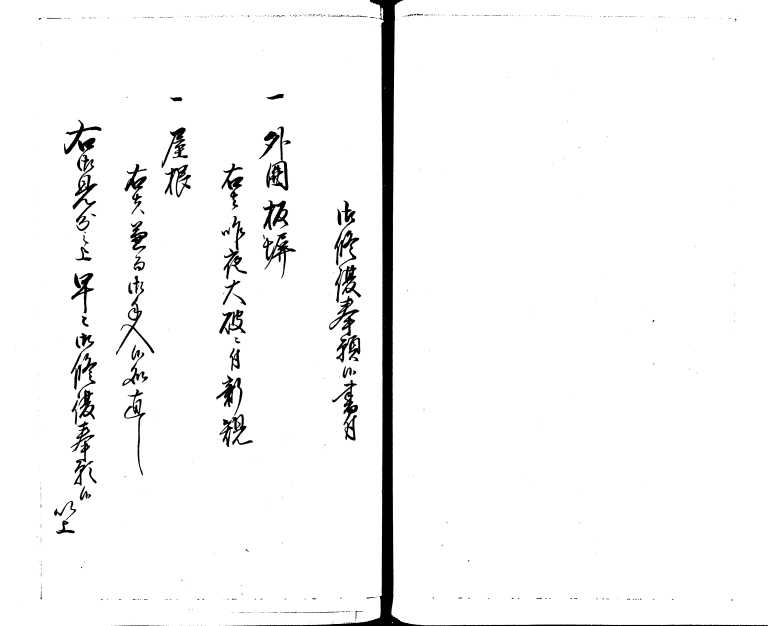 御修復奉願候書付
一 外囲板塀
右者昨夜大破ニ付新規
一 屋根
右者兼而御手入候処直し
右御見分之上早々御修復奉願候
以上